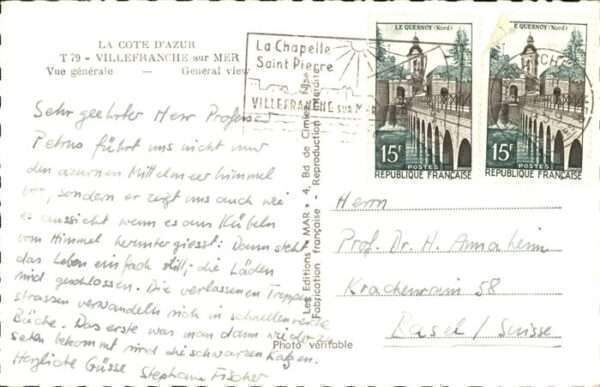 LA COTE D'AZUR
T 79 - VILLEFRANCHE sur MER
Vue générale — General view
La Chapelle
Saint Pierre
VILLEFRANCHE sur Mer
LE QUESNOY (Nord)
15F
POSTES
REPUBLIQUE FRANÇAISE
LE QUESNOY (Nord)
15F
POSTES
REPUBLIQUE FRANÇAISE
Sehr geehrter Herr Professor
Petrus führt uns nicht nur
den azurnen Mittelmeerhimmel
vor, sondern er zeigt uns auch wie
es aussieht wenn es aus Kübeln
vom Himmel herunter giesst: Dann steht
das Leben einfach still; die Läden
sind geschlossen. Die verlassenen Treppen-
strassen verwandeln sich in schnelle
Bäche. Das erste was man dann wieder zu
sehen bekommt sind die schwarzen Katzen.
Herzliche Grüsse Stephan Fischer
Les Editions MAR * 4, Bd de Cimiez
Fabrication française - Reproduction interdite
Photo véritable
Herrn
Prof. Dr. H. Annaheim
Krachenrain 58
Basel / Suisse